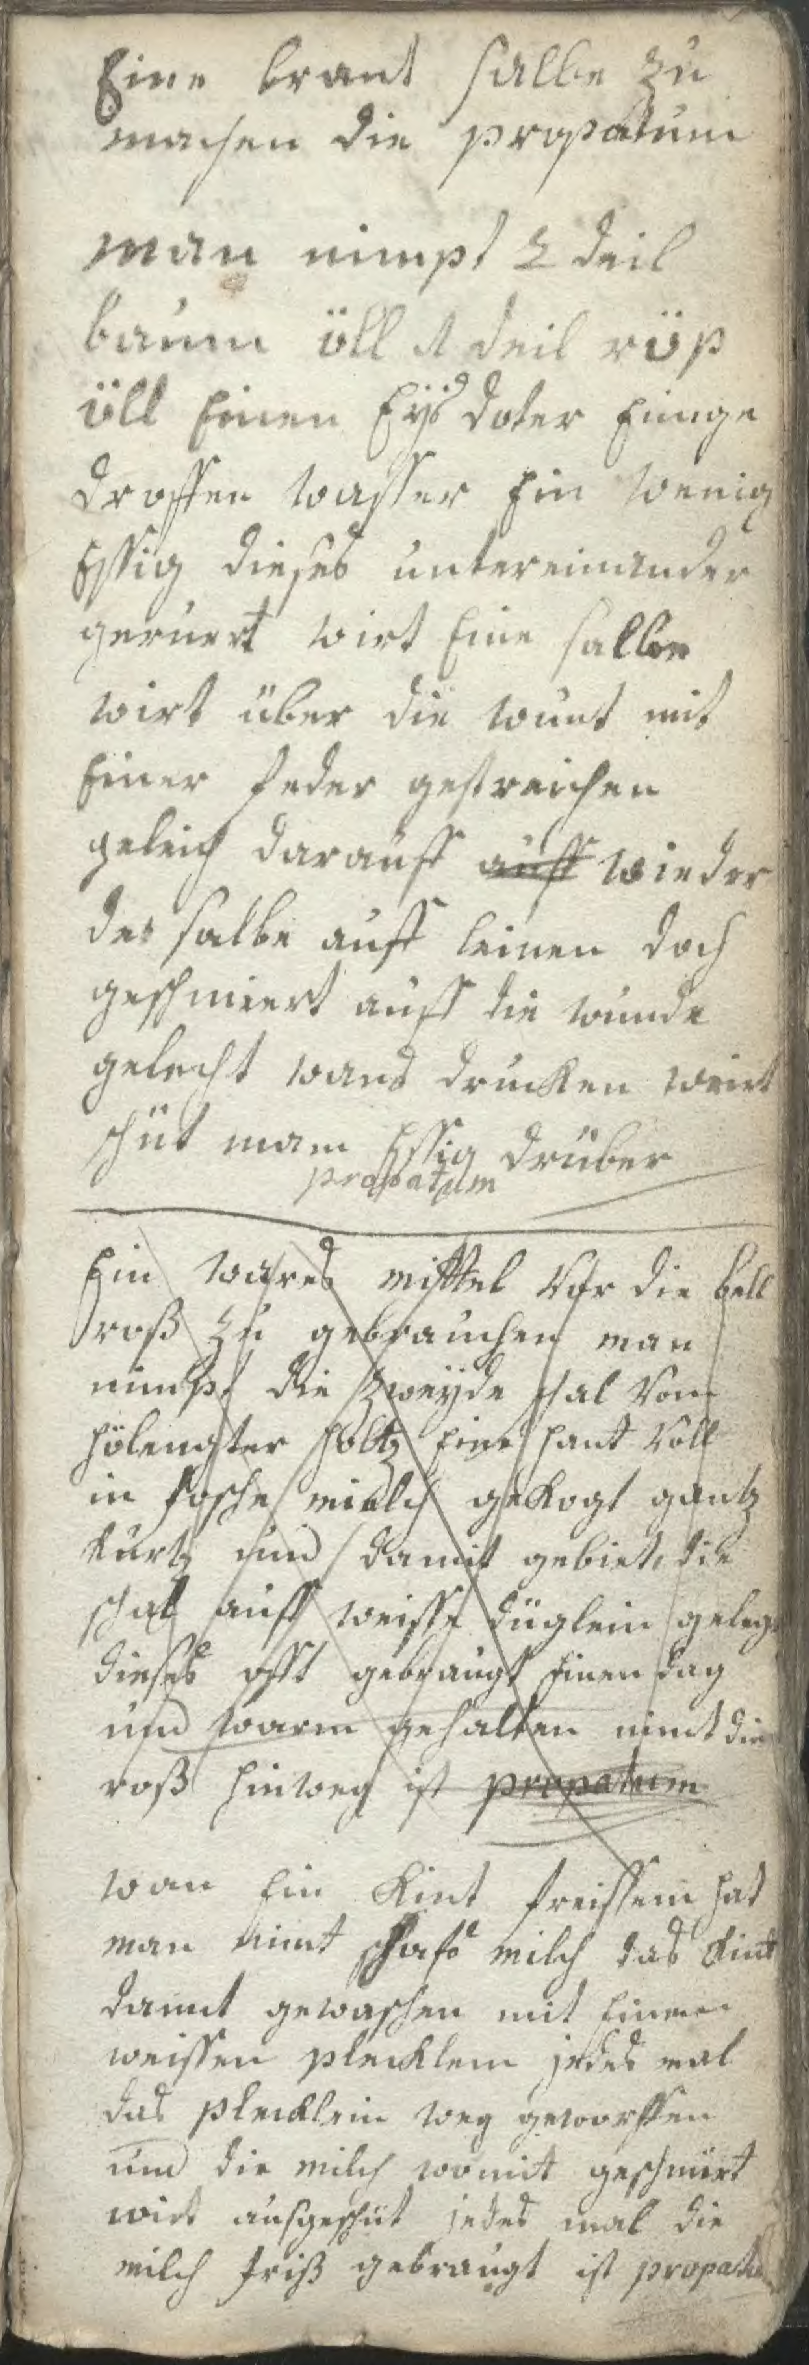 Eine brant salbe zu
machen die propatum
man nimpt 2 deil
baum öll 1 deil rüp
öll Einen Eÿs doter Einge
droffen wasser Ein wenig
Essig dieses untereinander
geruert wirt Eine salben
wirt über die wunt mit
Einer feder gestreichen
geleich darauff auff wieder
der salbe auff leinen doch
geschmiert auff die wunde
gelecht wans drucken wirt
schüt mam Essig drüber
propatum
Ein wares mittel Vor die bell
roß zu gebrauchen man
nimpt die zweÿde schal Vom
hölengter holtz Eine hant Voll
in fosche milch gekogt gantz
kurtz und damit gebiet, die
schal auff weisse düglein gelegt
dieses offt gebraugt Einen dag
und warm gehalten nimt die
roß hinweg ist propatum
wan Ein Kint freissem hat
man nimt schafs milch das Kint
damit gewaschen mit Einem
weissen plecklein jedes mal
das plecklein weg geworffen
und die milch womit geschmirt
wirt ausgeschüt jedes mal die
milch friß gebraugt ist propatum